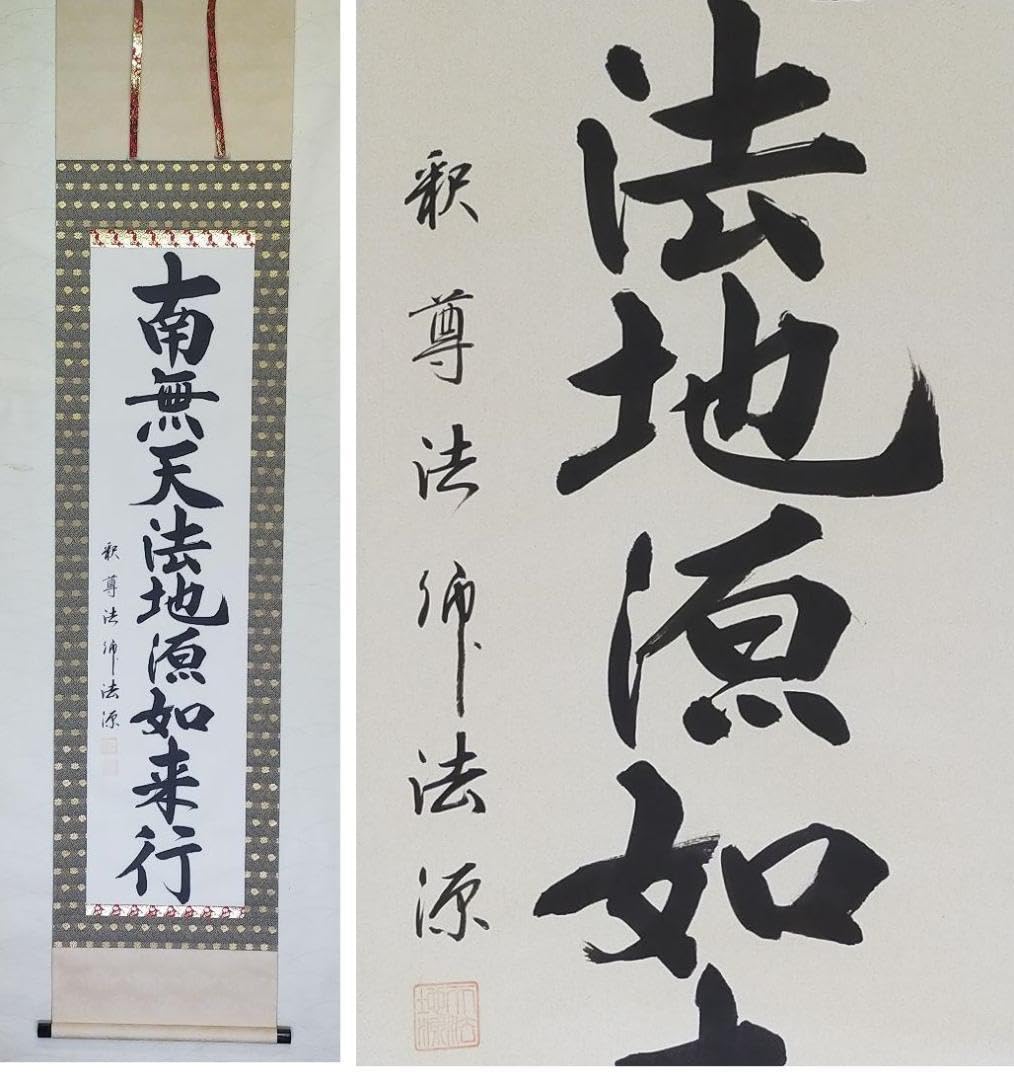 南無天法地源如来行
釈尊法師法源
法地源如
釈尊法師法源